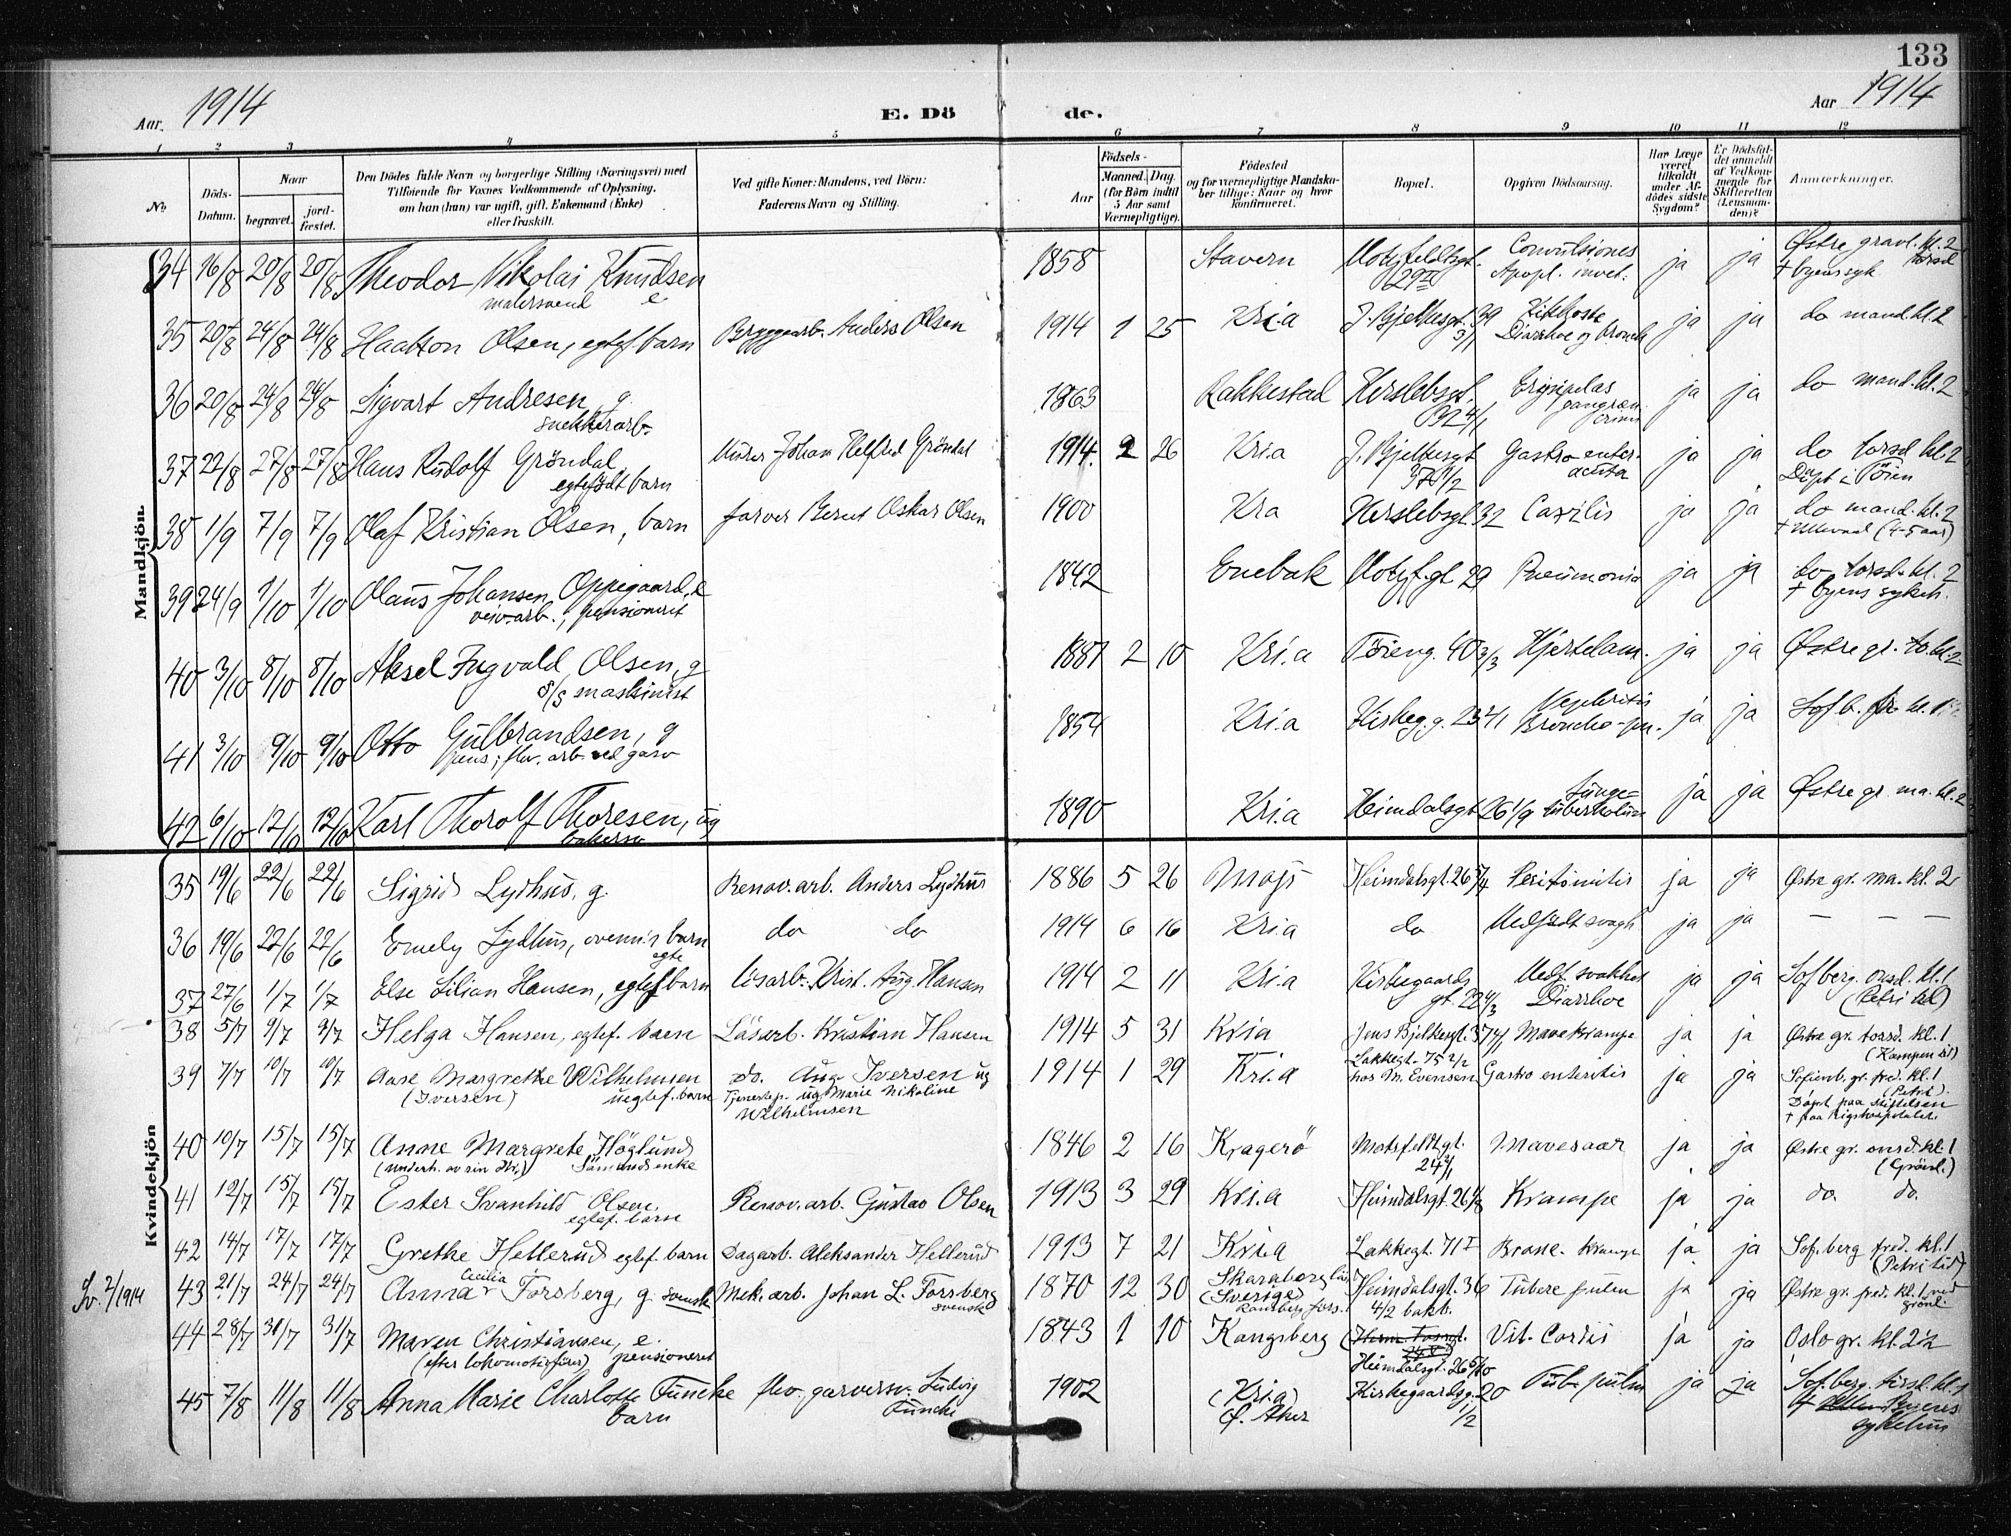 133
Aar 1914
E. Dö
de.
Aar 1914
1 2 3 4 5 6 7 8 9 10 11 12
No.
Döds-Datum.
Naar
begravet.
jord-fæstet.
Den Dödes fulde Navn og borgerlige Stilling (Næringsvei) med
Tilföiende for Voxnes Vedkommende af Oplysning,
om han (hun) var ugift, gift, Enkemand (Enke)
eller fraskilt.
Ved gifte Koner: Mandens, ved Börn:
Faderens Navn og Stilling.
Födsels-
Aar
Maaned. Dag.
(for Börn indtil
5 Aar samt
Værnepligtige).
Födested
og for værnepligtige Mandska-
ber tillige: Naar og hvor
konfirmeret.
Bopæl.
Opgiven Dödsaarsag.
Har Læge
været
tilkaldt
under Af-
dödes sidste
Sygdom?
Er Dödsfal-
det anmeldt
af Vedkom-
mende for
Skifteretten
(Lensman-
den)?
Anmærkninger.
Mandkjön.
34 16/8 20/8 20/8 Theodor Nikolai Knudsen 1858 Stavern Motzfeldtsgt. Convulsiones ja ja Østre gravl. kl. 2
malersvend e 29 II Apopl. invet. + byens syk torsd
35 20/8 24/8 24/8 Haakon Olsen, egtef. barn Bryggearb. Anders Olsen 1914 1 25 Kri.a J. Bjelkesgt. 39 Kikhoste ja ja do mand. kl. 2
3/1 Diarrhoe og Bronch
36 20/8 24/8 24/8 Sigvart Andresen, g. 1863 Rakkestad Herslebsgt. Erysipelas ja ja do mand. kl. 2
snekkerarb. 32 4/1 gangræn
37 22/8 27/8 27/8 Hans Rudolf Gröndal Murer Johan Helfred Gröndal 1914 2 26 Kri.a J. Bjelkesgt Gastro enter. ja ja do torsd kl 2
egtefödt barn 37 1/2 acuta Döpt i Töien
38 1/9 7/9 7/9 Olaf Kristian Olsen, barn farver Bernt Oskar Olsen 1900 Kra Herslebsgt. 32 ja ja do mand. kl. 2
+ Ullevaal (4-5 aar)
39 24/9 1/10 1/10 Olaus Johansen Oppegaard, e 1842 Enebak Motzf. gt 29 Pneumonia ja ja do torsd. kl. 2
veiv. arb., pensioneret + byens sykeh.
40 3/10 8/10 8/10 Aksel Ingvald Olsen, g 1887 2 10 Kri.a Töieng. 40 3/3 Hjertelam. ja ja Østre gr. to. kl. 2
S/S maskinist
41 3/10 9/10 9/10 Otto Gulbrandsen, g 1854 Kri.a Kirkeg.g. 23 4/1 Nephritis ja ja Sofb. fr. kl. 1
pens; fhv. arb. ved gasv Broncho-pn.
42 6/10 12/10 12/10 Karl Thorolf Thoresen, ug 1890 Kri.a Heimdalsgt 26 1/9 Lunge- ja ja Østre gr. ma. kl. 2
bakersv tuberkulose
Kvindekjön
35 19/6 22/6 22/6 Sigrid Lydhus, g. Renov. arb. Anders Lydhus 1886 5 26 Moss Heimdalsgt. 26 5/4 Peritonitis ja ja Østre gr. ma. kl. 2
36 19/6 22/6 22/6 Emely Lydhus, ovenn's barn do do 1914 6 16 Kri.a do Medfödt svagh ja ja — — —
egte
37 27/6 1/7 1/7 Else Lilian Hansen, egtef barn lösarb. Krist. Aug. Hansen 1914 2 11 Kri.a Kirkegaards Medf. svakhet ja ja Sofberg. onsd. kl. 1
gt. 22 4/3 Diarrhoe (Petri kl)
38 5/7 9/7 9/7 Helga Hansen, egtef. barn Lösarb. Kristian Hansen 1914 5 31 Kria Jens Bjelkesgt. 37 4/1 Mavekrampe ja ja Østre gr. torsd. kl. 1
(Kampen kl)
39 7/7 10/7 10/7 Aase Margrethe Wilhelmsen do. Aug Iversen ug 1914 1 29 Kri.a Lakkegt. 75 2/2 Gastro enteritis ja ja Sofienb. gr. fred. kl. 1
(Iversen) uegtef. barn Tjenestep. ug Marie Nikoline hos M. Evensen (Petri).
Wilhelmsen Döpt paa stiftelsen
+ paa Rigshospitalet.
40 10/7 15/7 15/7 Anne Margrete Höglund 1846 2 16 Kragerö Motzfeldtgt. Mavesaar ja ja Østre gr. onsd. kl. 1
(underh. av sin dtr.) Sömands enke 24 2/1 (Grönl.)
41 12/7 15/7 15/7 Ester Svanhild Olsen Renov. arb. Gustav Olsen 1913 3 29 Kri.a Heimdalsgt. 26 Krampe ja ja do do.
egtef. barn
42 14/7 17/7 17/7 Grethe Hellerud egtef. barn Dagarb. Aleksander Hellerud 1913 7 21 Kri.a Lakkegt. 71 I Bronc. krampe ja ja Sof.berg fred. kl. 1
(Petri kl)
Sv. 2/1914 43 21/7 24/7 24/7 Anna Cecilia Forsberg, g. svensk Mek. arb. Johan L. Forsberg 1870 12 30 Skaraborg län Heimdalsgt. 36 Tuberc pulm ja ja Østre gr. fred. kl. 1 ved
svensk (Sverige) 4/2 bakb. grönl.
44 28/7 31/7 31/7 Maren Christiansen, e. 1843 1 10 Kongsberg Vit. Cordis ja ja Oslo gr. kl. 2½
(efter lokomotivförer) pensioneret Heimdalsgt. 26 5/10
45 7/8 11/8 11/8 Anna Marie Charlotte Funcke fhv. garversv. Ludvig 1902 (Kri.a) Kirkegaardsg. 20 Tub. pulm ja ja Sof.berg. tirsd. kl. 1
barn Funcke Ø. Aker 1/2 + Byens
sykehus